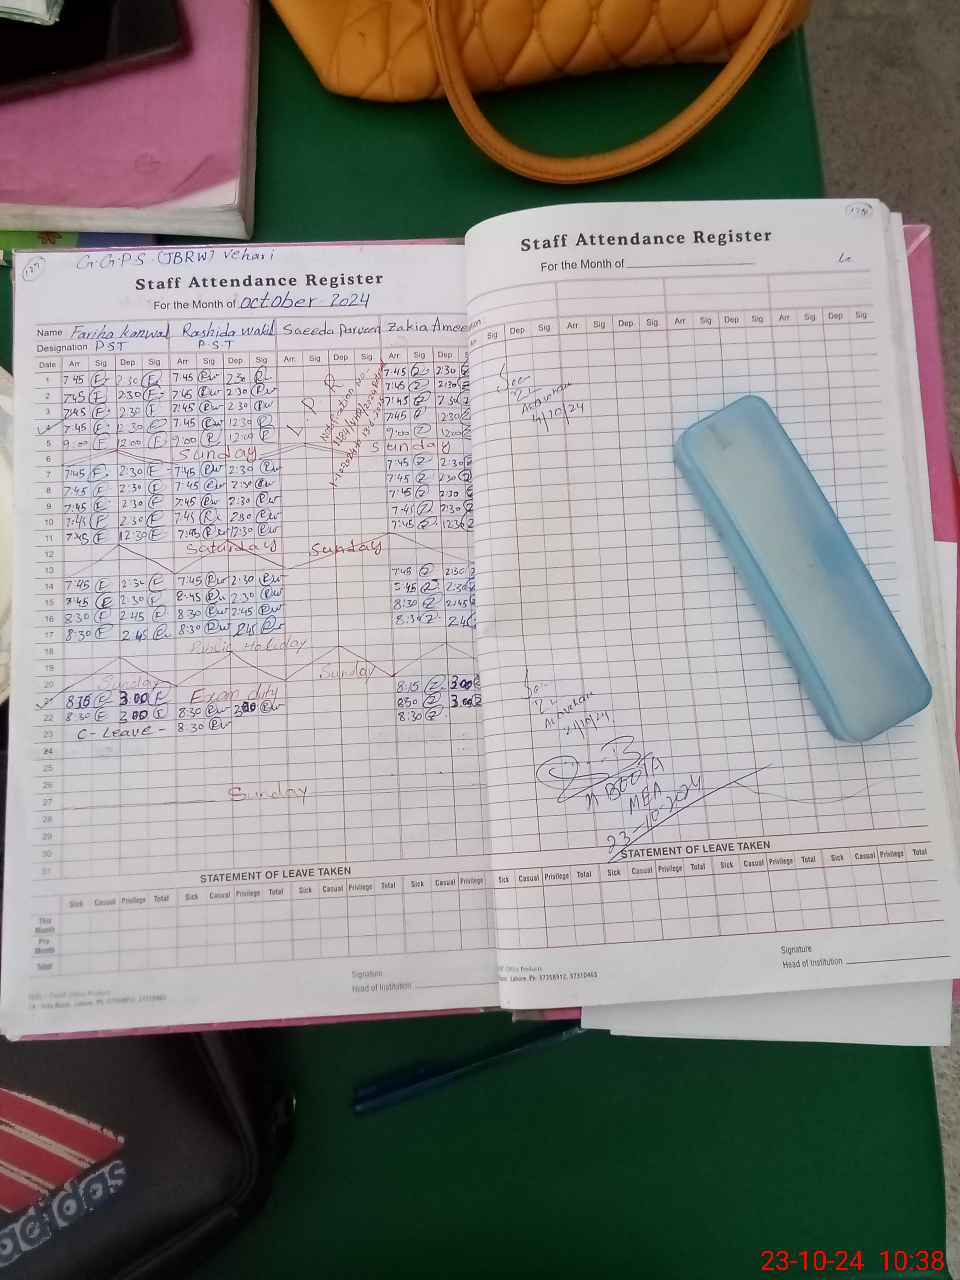 127
G.G.P.S (JBRW) Vehari
Staff Attendance Register
For the Month of October 2024
Name Fariha Kanwal Rashida Wakil Saeeda Parveen Zakia Ameen
Designation P.S.T P.S.T
Date Arr Sig Dep Sig Arr Sig Dep Sig Arr Sig Dep Sig Arr Sig Dep
1 7:45 2:30 7:45 2:30 7:45 2:30
2 7:45 2:30 7:45 2:30 7:45 2:30
3 7:45 2:30 7:45 2:30 7:45 2:30
4 7:45 7:45 12:30 7:45 12:30
5 9:00 12:00 9:00 12:00 9:00 12:00
6 Sunday Sunday
7 7:45 2:30 7:45 2:30 7:45 2:30
8 7:45 2:30 7:45 2:30 7:45 2:30
9 7:45 2:30 7:45 2:30 7:45 2:30
10 7:45 2:30 7:45 2:30 7:45 2:30
11 7:45 12:30 7:45 12:30 7:45 12:30
L P R
Notification No.
12 Saturday Sunday
13
14 7:45 2:30 7:45 2:30 7:45 2:30
15 7:45 2:30 8:45 2:30 2:30
16 8:30 2:45 8:30 2:45 8:30 2:45
17 8:30 2:45 8:30 2:45 8:30
18 Public Holiday
19
20 Sunday Sunday
21 8:15 3:00 Exam duty 8:15 3:00
22 8:30 3:00 8:30 3:00 8:30 3:00
23 C-Leave - 8:30 8:30
24
25
26
27 Sunday
28
29
30
31
STATEMENT OF LEAVE TAKEN
Sick Casual Privilege Total Sick Casual Privilege Total Sick Casual Privilege Total Sick Casual Privilege
This Month
Pre Month
Total
Signature
Head of Institution
Staff Attendance Register
For the Month of
Sig Dep Sig Arr Sig Dep Sig Arr Sig Dep Sig Arr Sig Dep Sig
4/10/24
M BOOTA
MEA
23-10-2024
STATEMENT OF LEAVE TAKEN
Sick Casual Privilege Total Sick Casual Privilege Total Sick Casual Privilege Total Sick Casual Privilege Total
Signature
Head of Institution
Office Products
Lahore. Ph: 37358912, 37310463
adidas
23-10-24 10:38